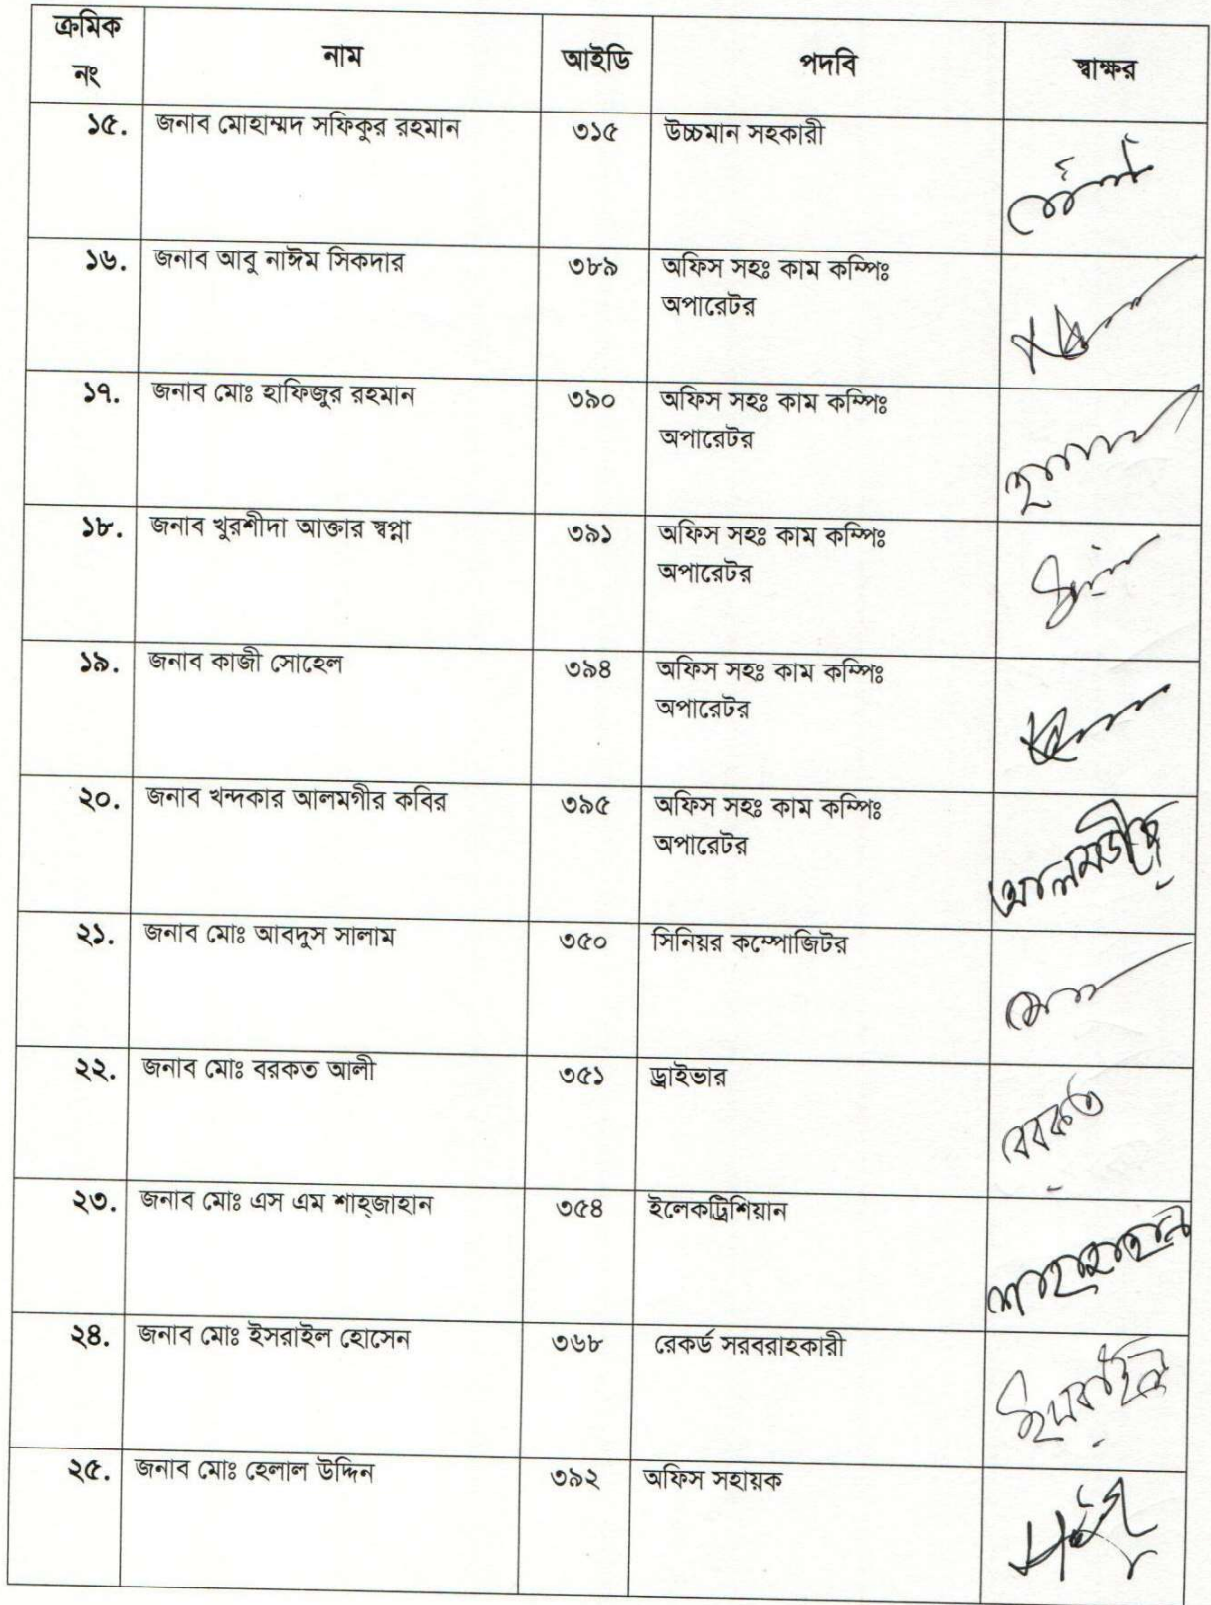 ক্রমিক নং নাম আইডি পদবি স্বাক্ষর
১৫. জনাব মোহাম্মদ সফিকুর রহমান ৩১৫ উচ্চমান সহকারী
১৬. জনাব আবু নাঈম সিকদার ৩৮৯ অফিস সহঃ কাম কম্পিঃ
অপারেটর
১৭. জনাব মোঃ হাফিজুর রহমান ৩৯০ অফিস সহঃ কাম কম্পিঃ
অপারেটর
১৮. জনাব খুরশীদা আক্তার স্বপ্না ৩৯১ অফিস সহঃ কাম কম্পিঃ
অপারেটর
১৯. জনাব কাজী সোহেল ৩৯৪ অফিস সহঃ কাম কম্পিঃ
অপারেটর
২০. জনাব খন্দকার আলমগীর কবির ৩৯৫ অফিস সহঃ কাম কম্পিঃ
অপারেটর
আলমগীর
২১. জনাব মোঃ আবদুস সালাম ৩৫০ সিনিয়র কম্পোজিটর
২২. জনাব মোঃ বরকত আলী ৩৫১ ড্রাইভার
বরকত
২৩. জনাব মোঃ এস এম শাহ্জাহান ৩৫৪ ইলেকট্রিশিয়ান
শাহাজাহান
২৪. জনাব মোঃ ইসরাইল হোসেন ৩৬৮ রেকর্ড সরবরাহকারী
ইসরাইল
২৫. জনাব মোঃ হেলাল উদ্দিন ৩৯২ অফিস সহায়ক